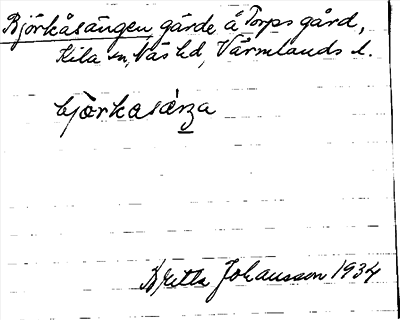 Björkåsängen gärde å Torps gård,
Kila sn, Näs hd, Värmlands l.
Britta Johansson 1934